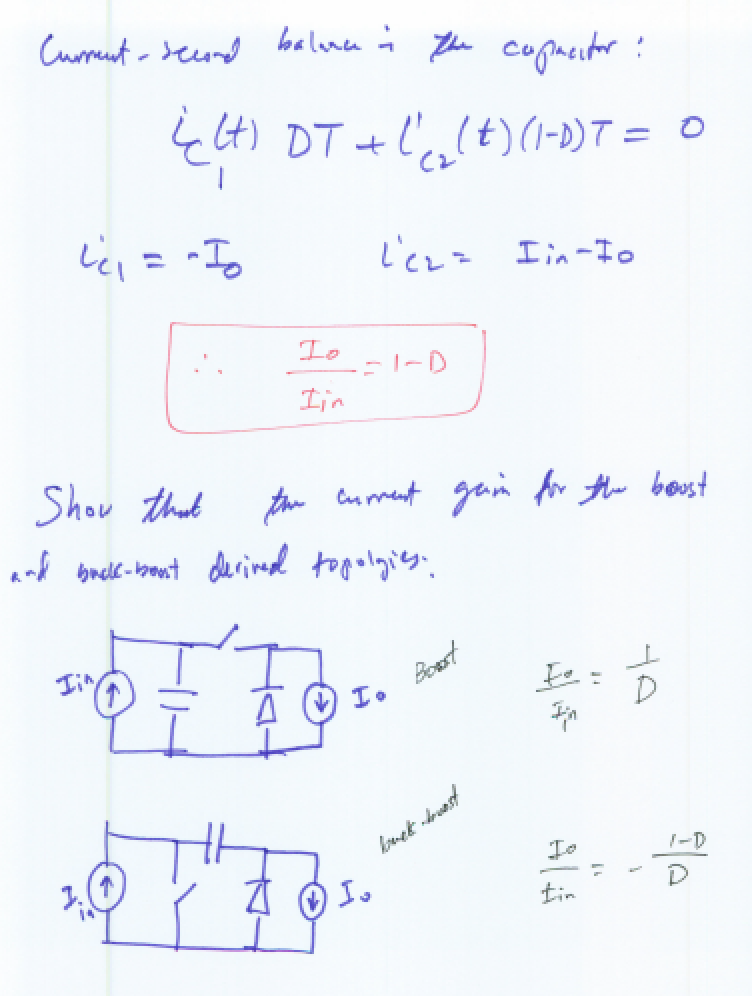 Current-second balance in the capacitor:
i_C1(t) DT + i_C2(t)(1-D)T = 0
i_C1 = -I_o i_C2 = I_in - I_o
∴ I_o / I_in = 1-D
Show that the current gain for the boost
and buck-boost derived topolgies.
I_in I_o Boost I_o / I_in = 1 / D
I_in I_o buck-boost I_o / I_in = - (1-D) / D